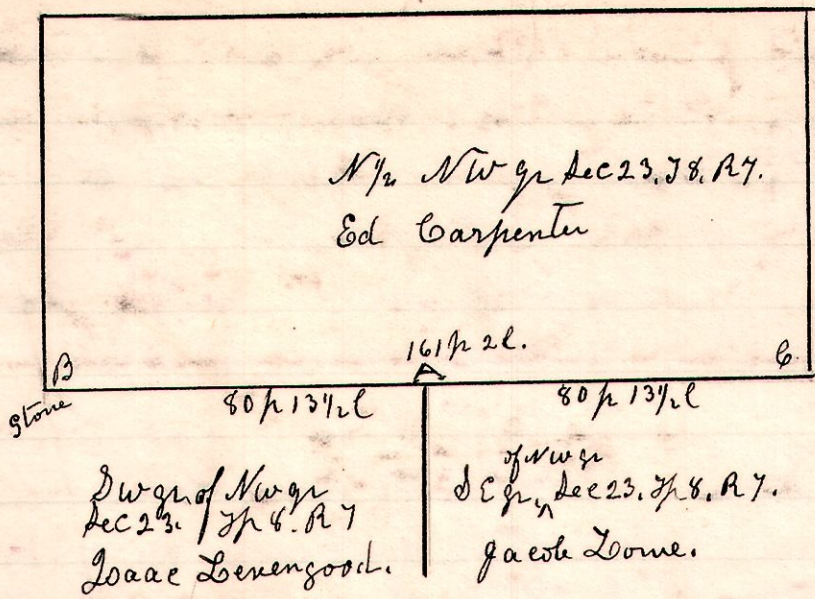 N½ NW qr Sec 23. T8. R7.
Ed Carpenter
161 p 2 l.
B
C
Stone
A
80 p 13½ l
80 p 13½ l
SW qr of NW qr
Sec 23. Tp 8. R7
Isaac Levengood.
of NW qr
SE qr ^ Sec 23. Tp 8. R7.
Jacob